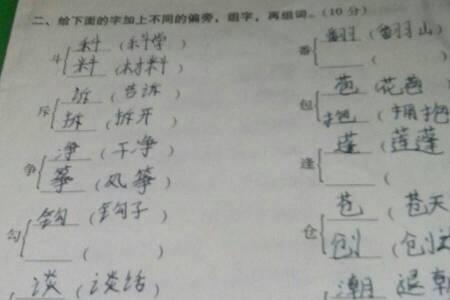 二、给下面的字加上不同的偏旁，组字，再组词。（10分）
斗 科（科学）
料（材料）
斥 诉（告诉）
拆（拆开）
争 净（干净）
筝（风筝）
勾 钩（钩子）
（ ）
谈（谈话）
番 翻（翻山）
（ ）
包 苞（花苞）
抱（拥抱
逢 蓬（莲蓬）
（
仓 苍（苍天
创（创
潮 退潮